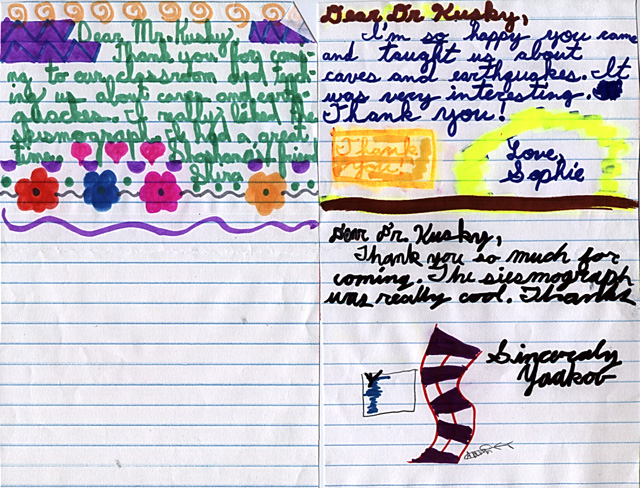 Dear Mr. Kusky,
Thank you for com
ing to our classroom and teach
ing us about caves and earth
quackes. I really liked the
seismograph. I had a great
time.
Shira
Dear Dr Kusky,
I'm so happy you came
and taught us about
caves and earthquakes. It
was very interesting.
Thank you!
Thank
you
Love,
Sophie
Dear Dr. Kusky,
Thank you so much for
coming. The siesmograph
was really cool. Thanks
Sinceraly
Yaakov